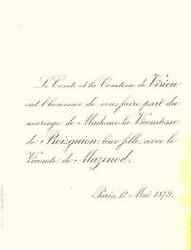 Le Comte et la Comtesse de Virieu
ont l'honneur de vous faire part du
mariage de Madame la Vicomtesse
de leur fille, avec le
Vicomte de Mazenod.
Paris, Mai 1879.